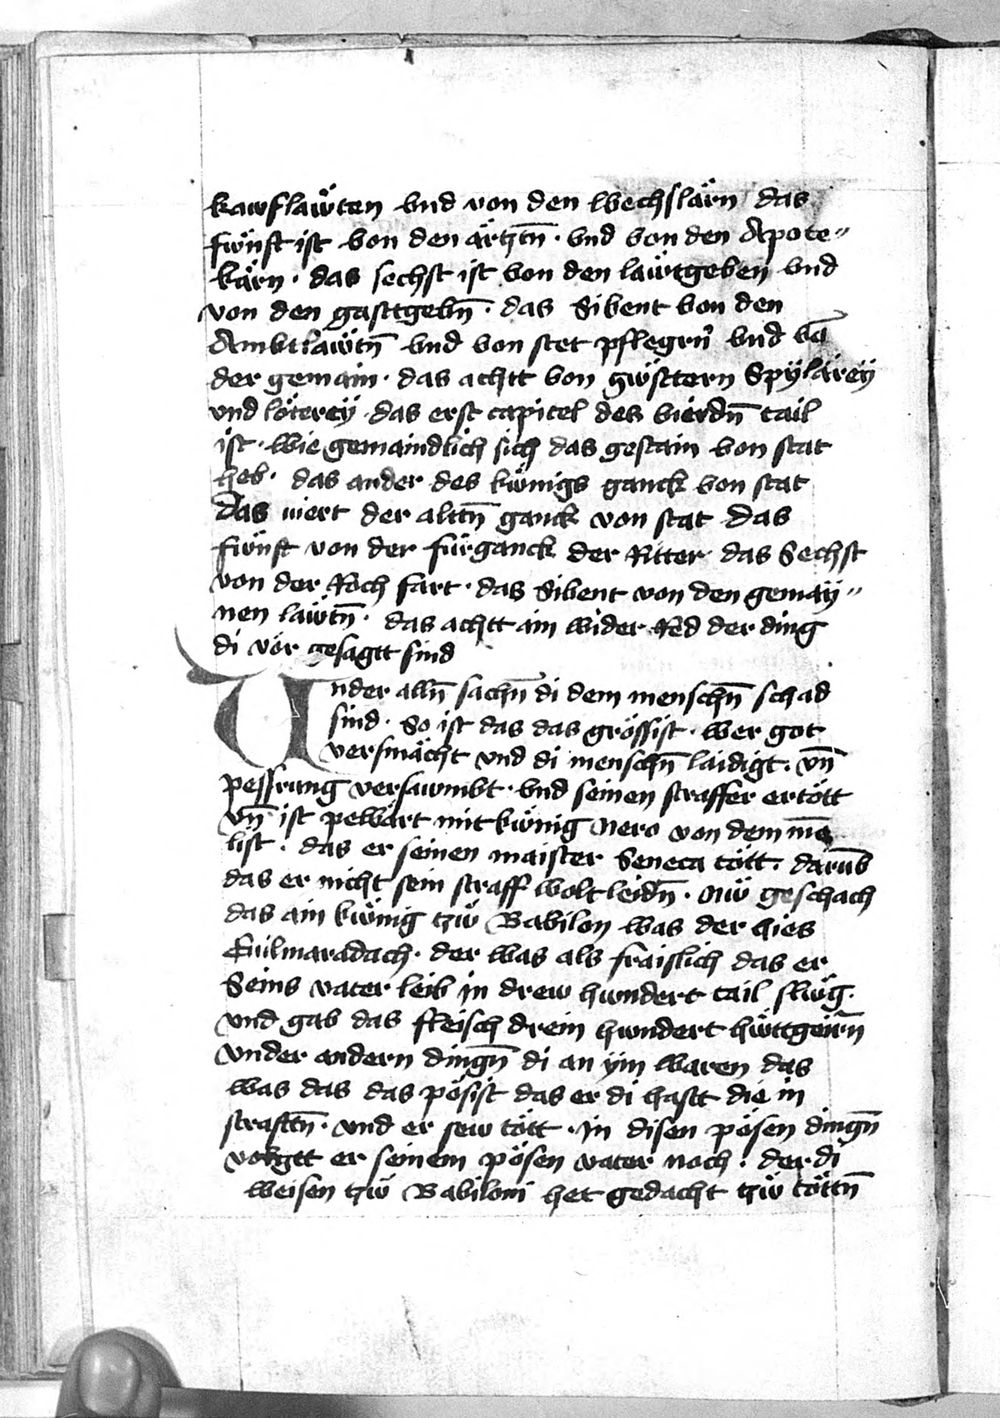 kawflaẅten vnd von den wechslärn das
fẅnft ist von den ärtztn̄ · vnd von den Apote〃
kärn · das sechst ist von den laẅtgeben vnd
von den gasttgebn̄ · das Sibent von den
Ambtlaẅtn̄ vnd von stet pflegrn̄ vnd vō
der gemain · das achtt von gẅsttern Spÿlärëÿ
vnd löterëÿ · das erst capitel des vierdn̄ tail
ist · wie gemaindlich sich das gestain von stat
heb · das ander des kẅnigs ganck von stat
Das uiert der alttn̄ ganck von stat das
fẅnft von der fürganck der Ritter · das Sechst
von der Roch fart · das Sibent von den gemaÿ〃
nen laẅtn̄ · das achtt ain wider Red der ding
di vor gesagtt sind
Vnder alln̄ sachn̄ di dem menschn̄ schad
sind · So ist das das grössist · wer got
versmächt vnd di menschn̄ laidigt · vn̄
pessrung versawmbt · vnd seinen straffer ertött
vn̄ ist pewärt mit kẅnig Nero von dem mē
list · das er seinen maister Seneca tött · darūb
das er nicht sein straff wolt leidn̄ · Nẅ geschach
das ain kẅnig tzẅ Babilon was der hies
Euilmaradach · der was als fraislich das er
Seins vater leib in drew hwndert tail slẅg ·
vnd gab das fleisch drein hwndert hẅttgeirn̄
vnder andern dingn̄ di an ÿm waren das
was das das pösist das er di hastt die in
strafttn̄ · vnd er sew tött · In disen pösen dingn̄
volgtt er seinem pösen vater noch · der di
weisen tzẅ Babiloni het gedacht tzẅ töttn̄